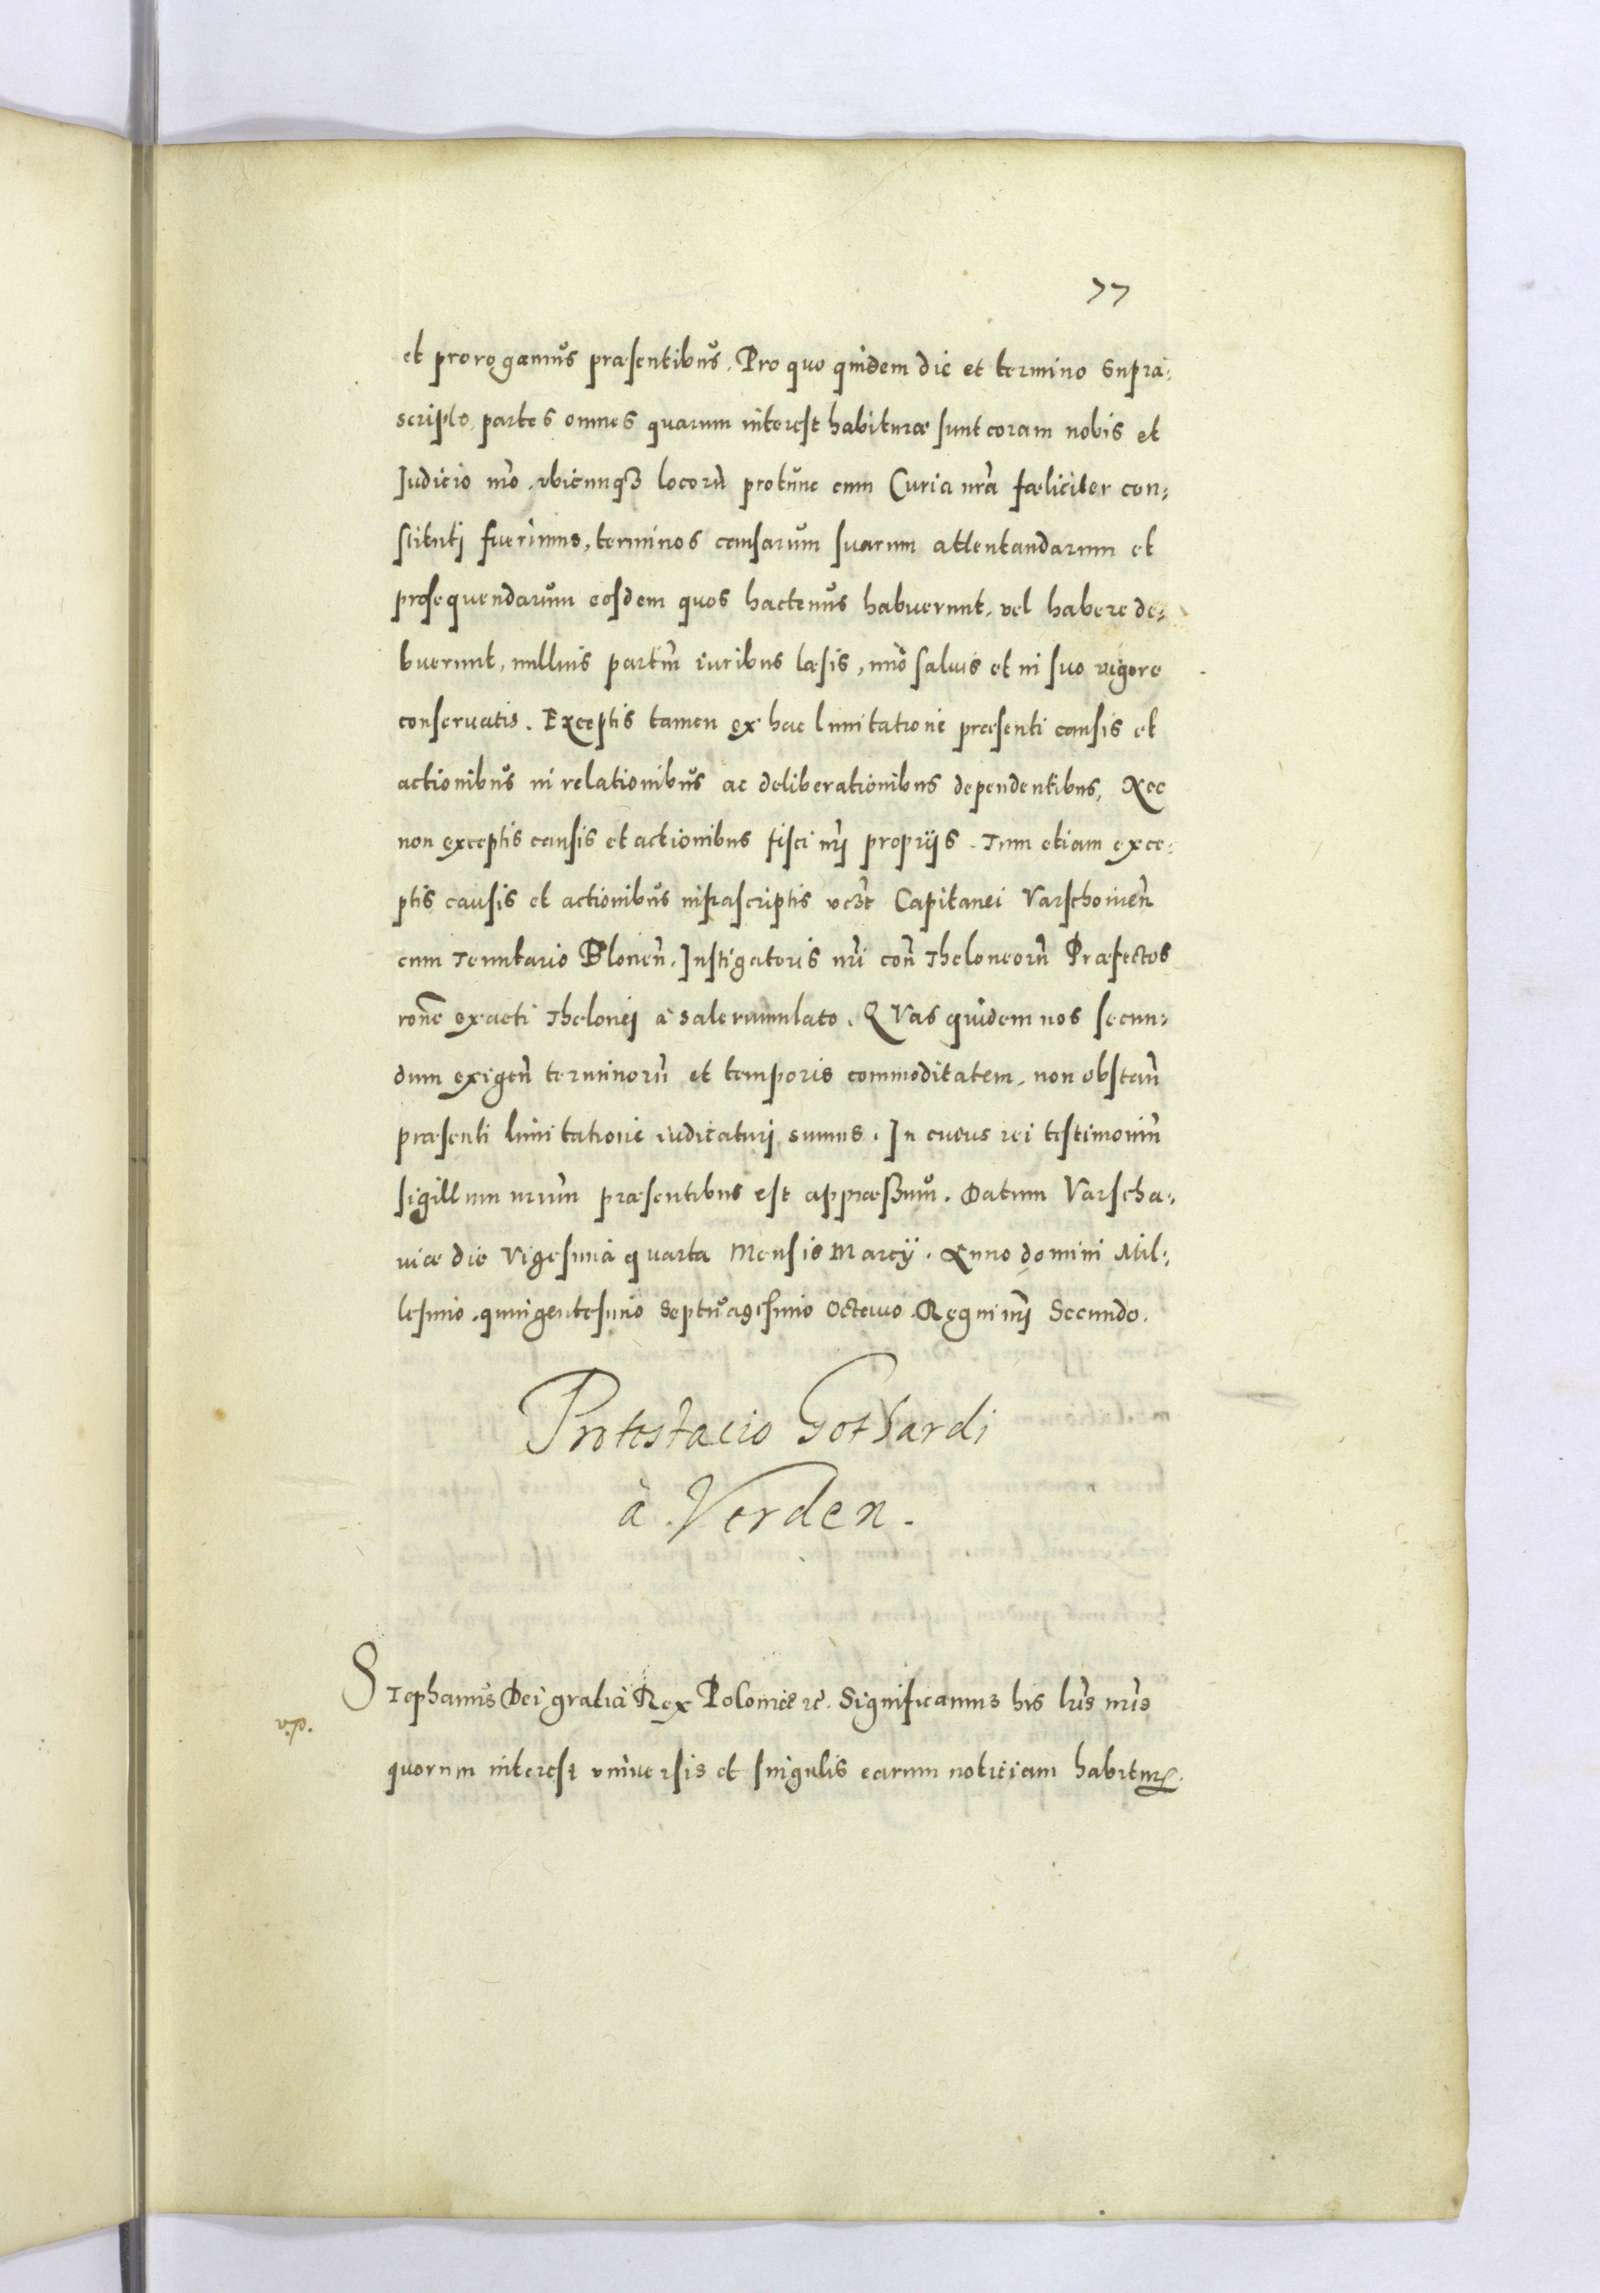 77
et prorogamus præsentibus. Pro quo quidem die et termino supra⸗
scripto, partes omnes quarum interest habituræ sunt coram nobis et
Iudicio nr̃o, vbicunqȝ locorũ protunc cum Curia nrã fæliciter con⸗
stituti fuerimus, terminos causarum suarum attentandarum et
prosequendarum eosdem quos hactenus habuerunt, vel habere de⸗
buerunt, nullius partiũ iuribus læsis, imo saluis et in suo vigore
conseruatis. Exceptis tamen ex hac limitatione præsenti causis et
actionibus in relationibus ac deliberationibus dependentibus, Nec
non exceptis causis et actionibus fisci nr̃j proprijs. Tum etiam exce⸗
ptis causis et actionibus infrascriptis vcȝt Capitanei Varschouień
cum Tenutario Blonień. Instigatoris nr̃i coñ Theloneorũ Præfectos
roñe exacti Thelonej à sale rumulato. QVas quidem nos secun⸗
dum exigeñ terminorũ et temporis commoditatem, non obstañ
præsenti limitatione iudicaturj sumus. In cuius rei testimoniũ
sigillum nrũm præsentibus est appræssum. Datum Varscha⸗
uiæ die Vigesima quarta Mensis Marcÿ. Anno domini Mil⸗
lesimo quingentesimo Septuagesimo Octauo. Regni nr̃j Secundo.
Protestacio Gothardi
à Verden.
Stephanus Dei gratia Rex Poloniæ ꝛc̃. Significamus his lrĩs nrĩs
quorum interest vniuersis et singulis earum noticiam habitur.